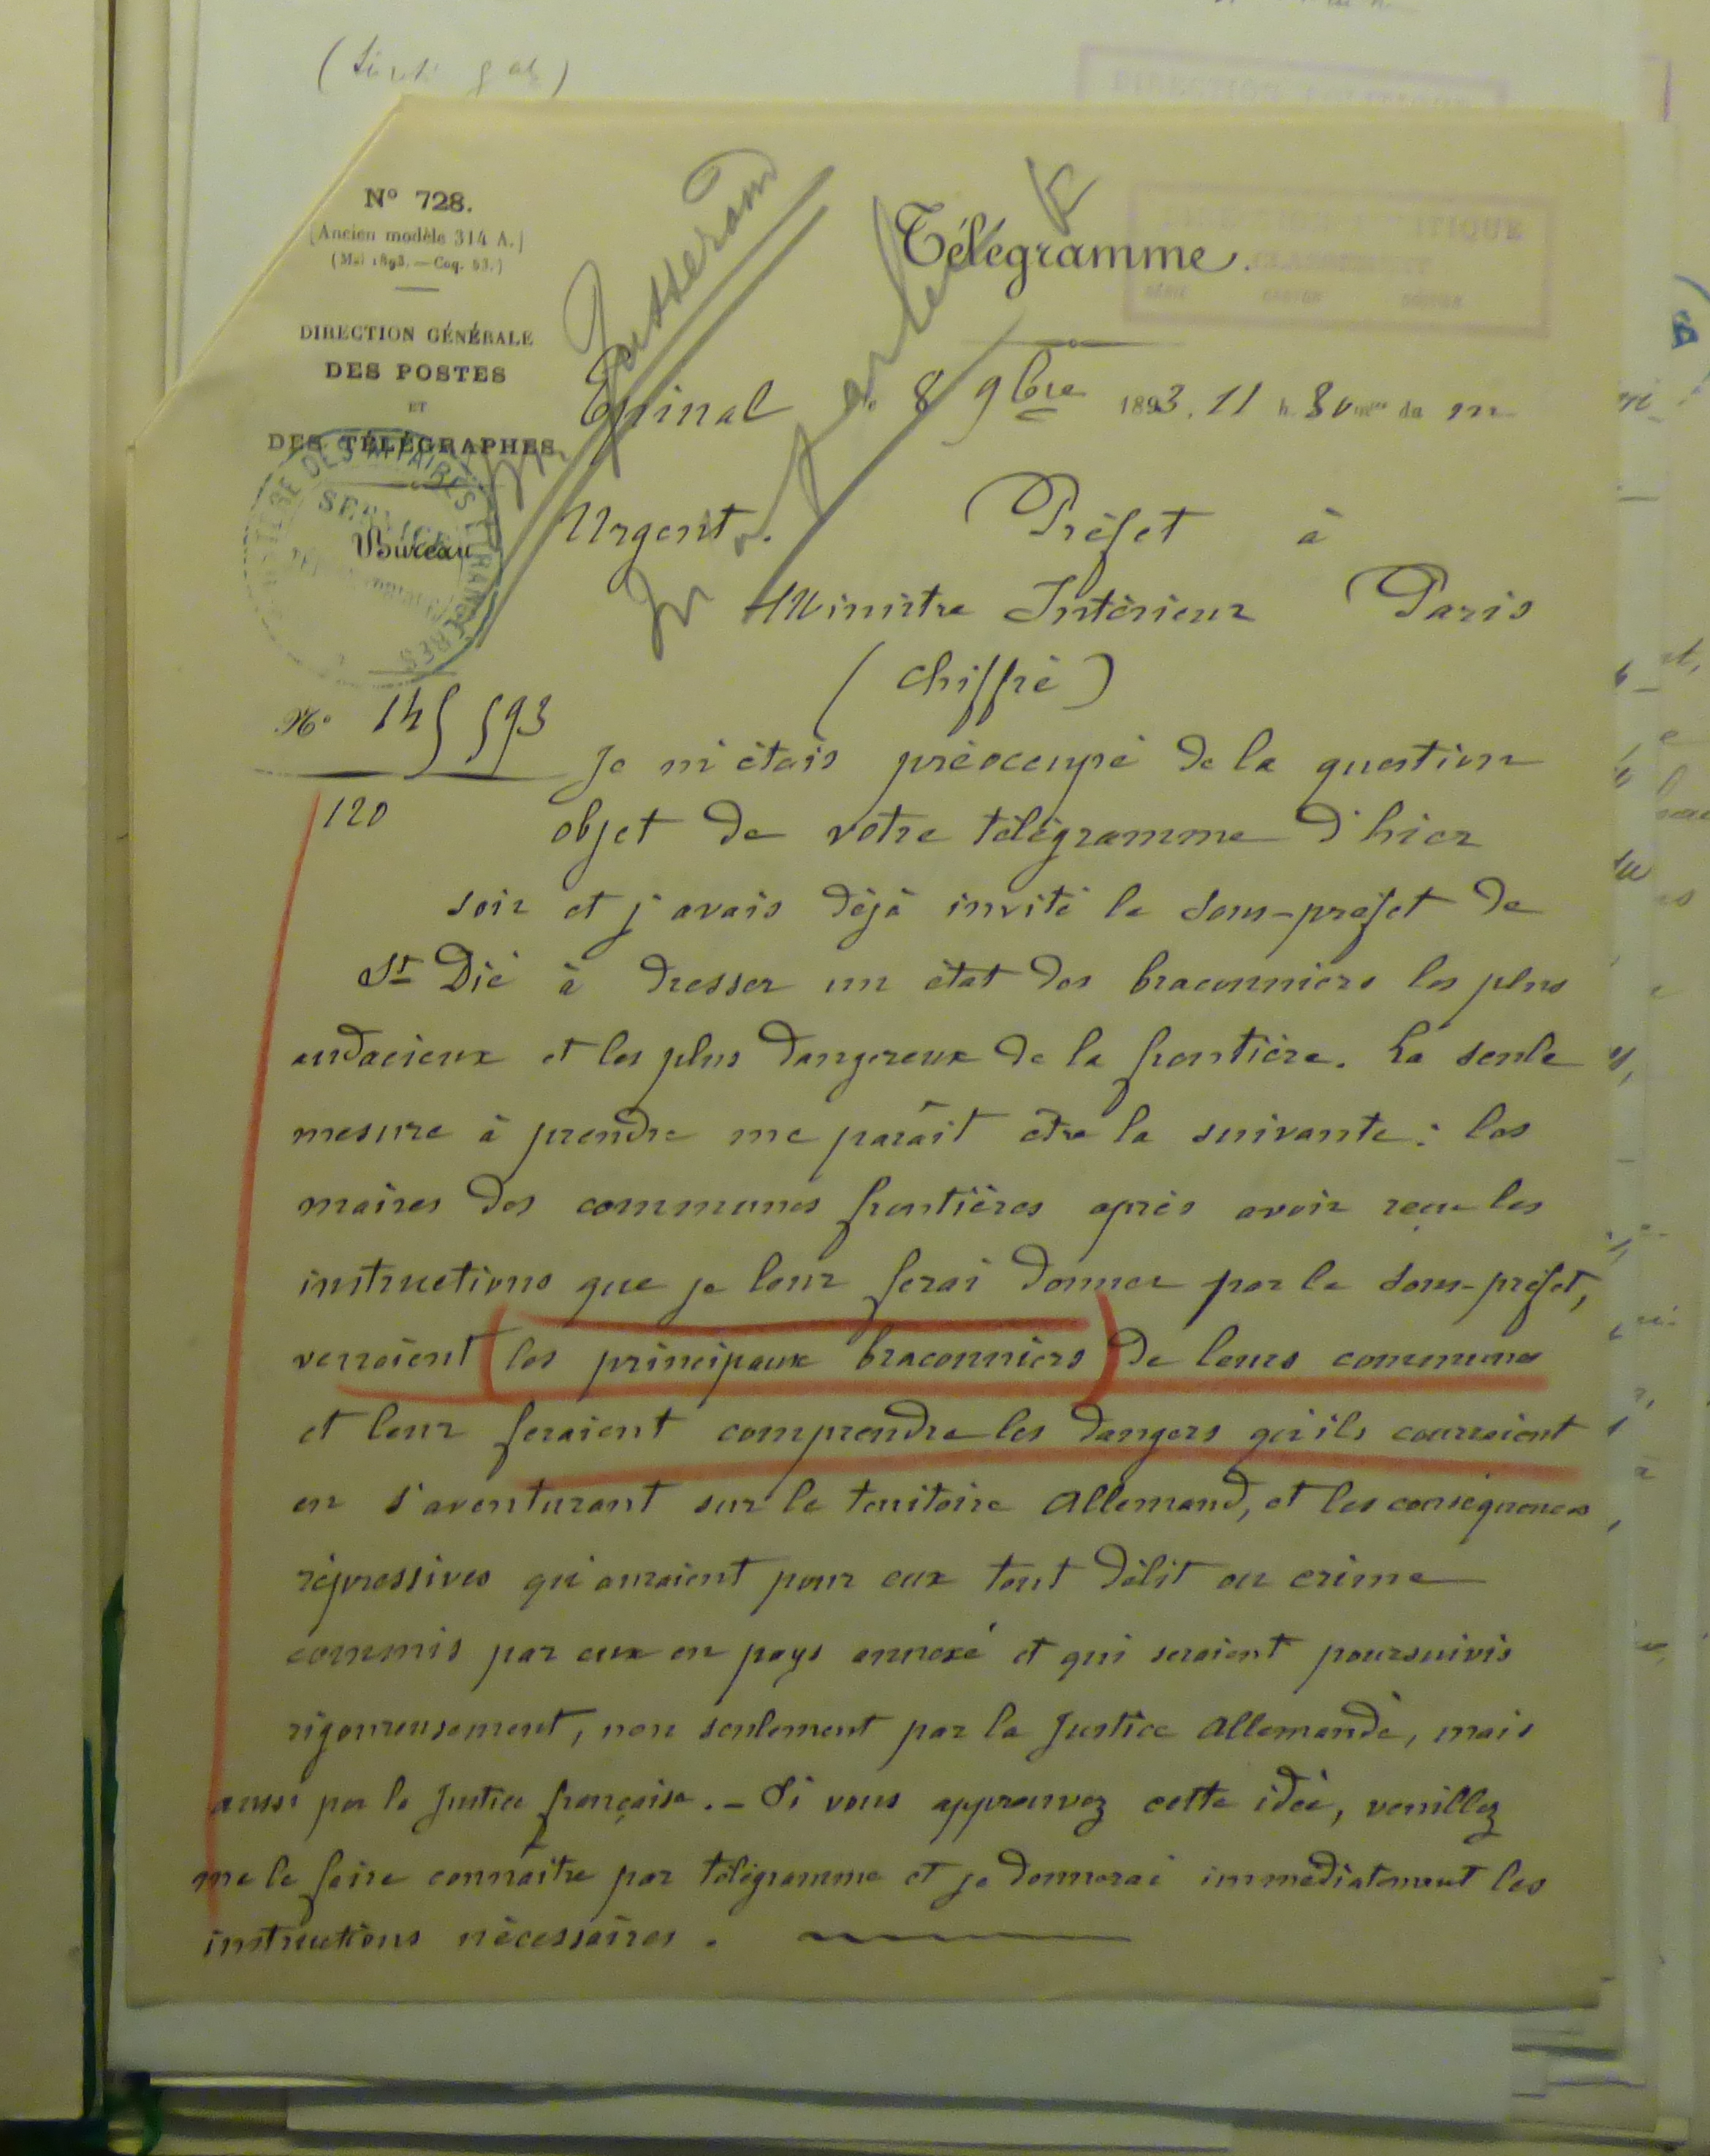 N° 728.
(Ancien modèle 314 A.)
(Mai 1893. — Coq. 53.)
DIRECTION GÉNÉRALE
DES POSTES
ET
DES TÉLÉGRAPHES
Bureau
SERVICE
Jusserand
Télégramme.
Epinal le 8 9bre 1893. 11 h. 30 m du m
Urgent. Préfet à
Ministre Intérieur Paris
(chiffré)
N° 145 593
120
Je m'étais préoccupé de la question
objet de votre télégramme d'hier
soir et j'avais déjà invité le sous-préfet de
St Dié à dresser un état des braconniers les plus
audacieux et les plus dangereux de la frontière. La seule
mesure à prendre me paraît être la suivante : les
maires des communes frontières après avoir reçu les
instructions que je leur ferai donner par le sous-préfet,
verraient (les principaux braconniers) de leurs communes
et leur feraient comprendre les dangers qu'ils courraient
en s'aventurant sur le territoire Allemand, et les conséquences
répressives qu'auraient pour eux tout délit ou crime
commis par eux en pays annexé et qui seraient poursuivis
rigoureusement, non seulement par la Justice Allemande, mais
aussi par la Justice française. – Si vous approuvez cette idée, veuillez
me le faire connaître par télégramme et je donnerai immédiatement les
instructions nécessaires.